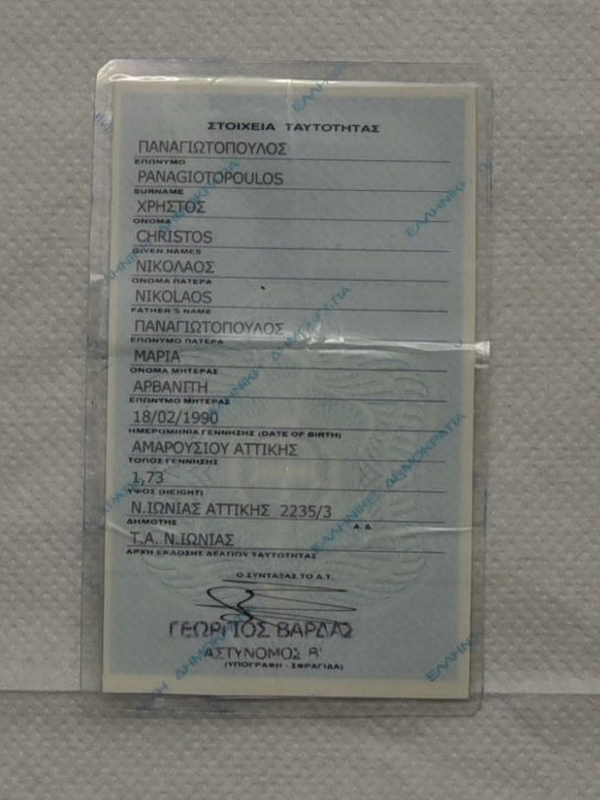 ΣΤΟΙΧΕΙΑ ΤΑΥΤΟΤΗΤΑΣ
ΠΑΝΑΓΙΩΤΟΠΟΥΛΟΣ
ΕΠΩΝΥΜΟ
PANAGIOTOPOULOS
SURNAME
ΧΡΗΣΤΟΣ
ΟΝΟΜΑ
CHRISTOS
GIVEN NAMES
ΝΙΚΟΛΑΟΣ
ΟΝΟΜΑ ΠΑΤΕΡΑ
NIKOLAOS
FATHER'S NAME
ΠΑΝΑΓΙΩΤΟΠΟΥΛΟΣ
ΕΠΩΝΥΜΟ ΠΑΤΕΡΑ
ΜΑΡΙΑ
ΟΝΟΜΑ ΜΗΤΕΡΑΣ
ΑΡΒΑΝΙΤΗ
ΕΠΩΝΥΜΟ ΜΗΤΕΡΑΣ
18/02/1990
ΗΜΕΡΟΜΗΝΙΑ ΓΕΝΝΗΣΗΣ (DATE OF BIRTH)
ΑΜΑΡΟΥΣΙΟΥ ΑΤΤΙΚΗΣ
ΤΟΠΟΣ ΓΕΝΝΗΣΗΣ
1,73
ΥΨΟΣ (HEIGHT)
Ν.ΙΩΝΙΑΣ ΑΤΤΙΚΗΣ 2235/3
ΔΗΜΟΤΗΣ Α.Δ
Τ.Α. Ν.ΙΩΝΙΑΣ
ΑΡΧΗ ΕΚΔΟΣΗΣ ΔΕΛΤΙΟΥ ΤΑΥΤΟΤΗΤΑΣ
Ο ΣΥΝΤΑΞΑΣ ΤΟ Δ.Τ.
ΓΕΩΡΓΙΟΣ ΒΑΡΔΑΣ
ΑΣΤΥΝΟΜΟΣ Β'
(ΥΠΟΓΡΑΦΗ - ΣΦΡΑΓΙΔΑ)
ΕΛΛΗΝΙΚΗ ΔΗΜΟΚΡΑΤΙΑ